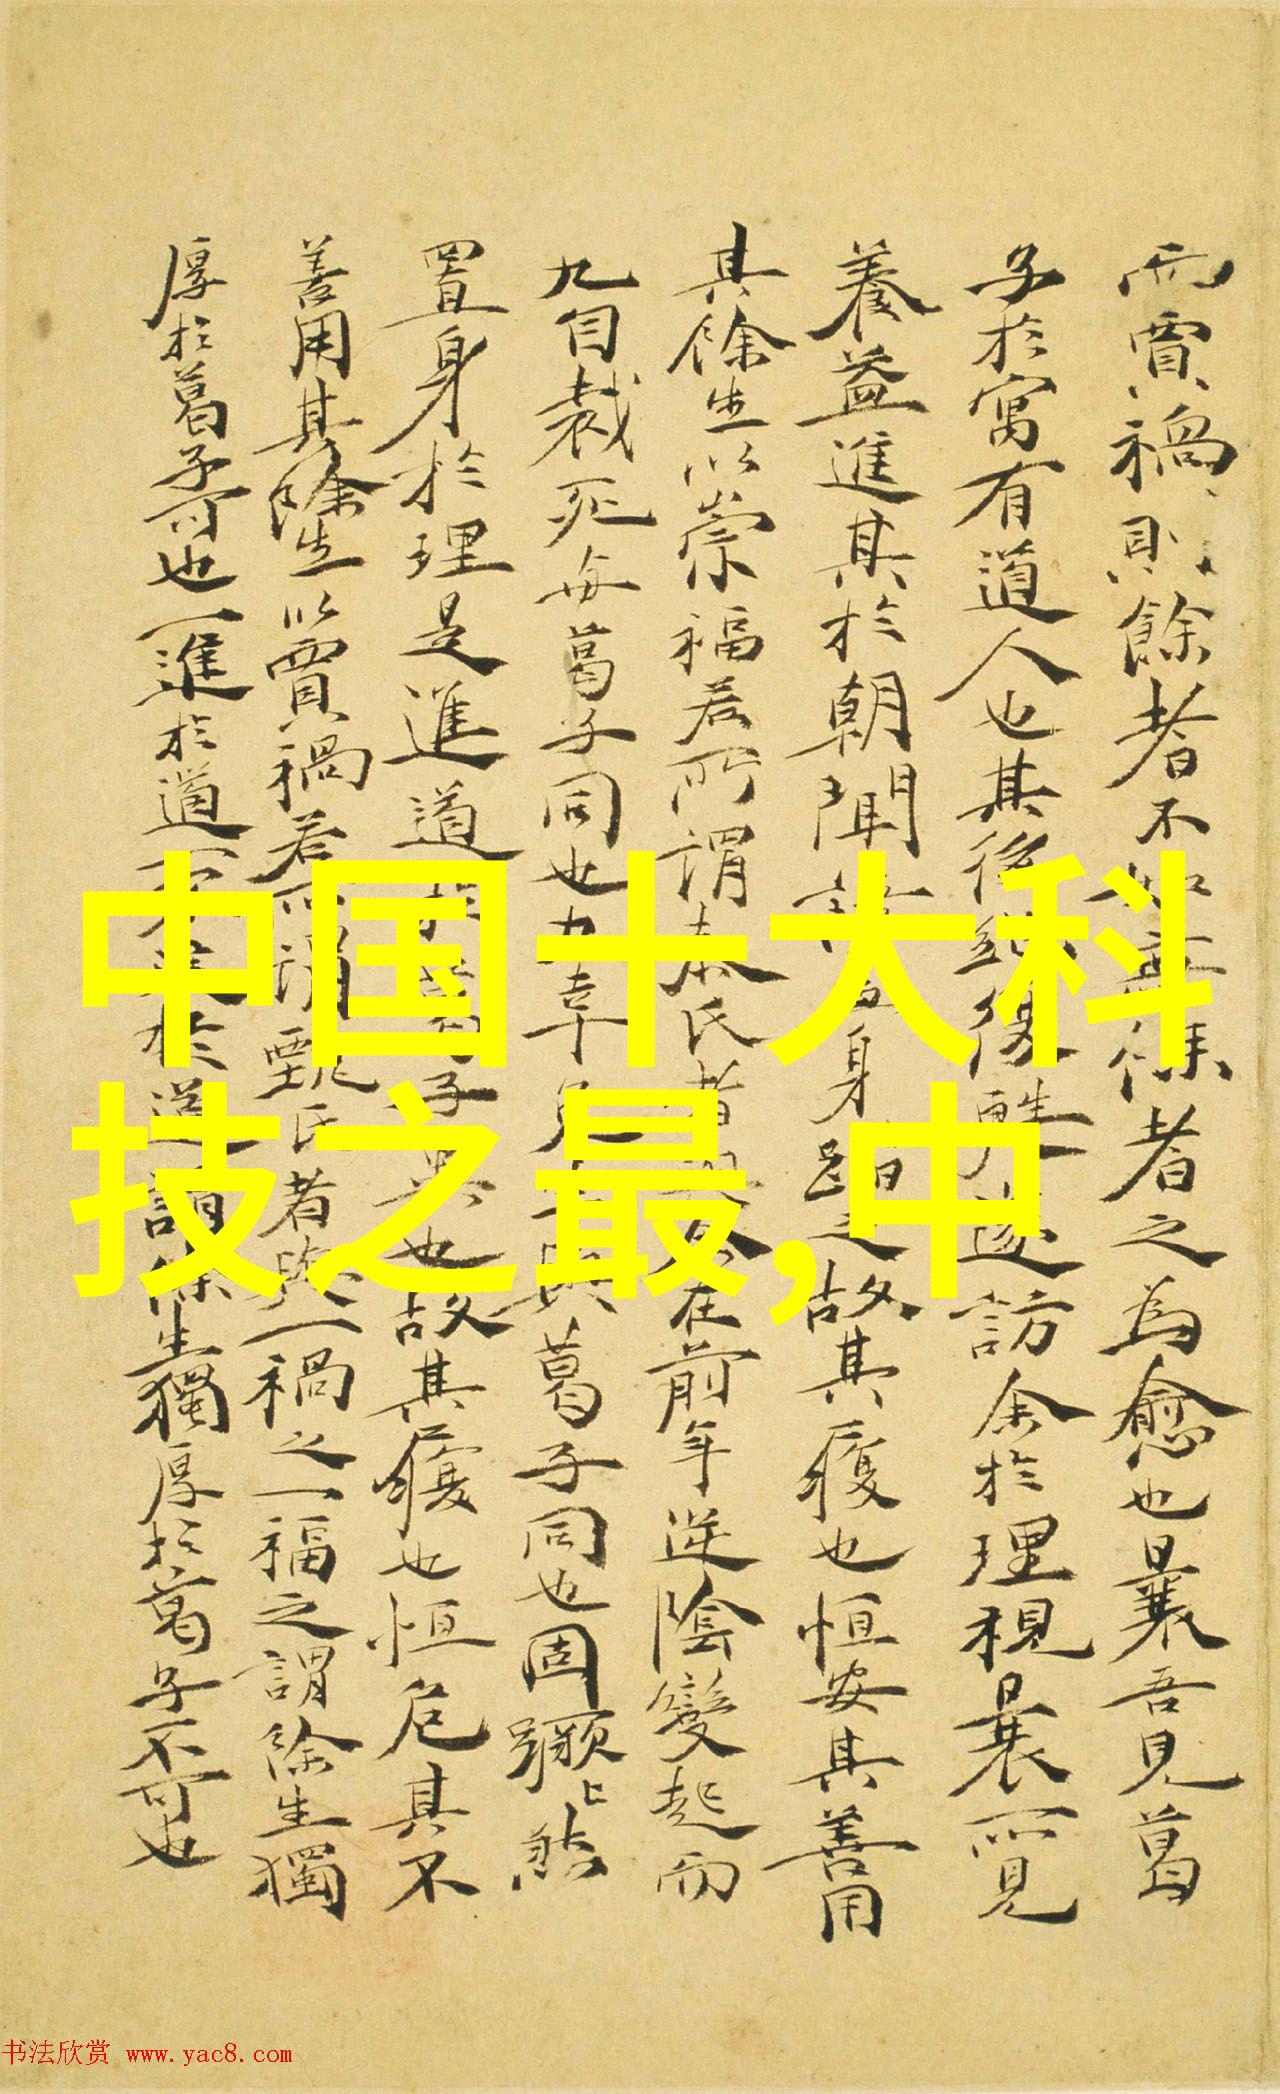 而賈禍則餘者不如無餘者之為愈也曩吾見葛
子於寓有道人也其後
訪余於理視曩所見
養益進其於朝聞
身
之故其履也恒安其善用
其餘生以崇福若所謂
氏者
在前年逆陰變起而
九自裁死毋葛子同也
葛子同也固
置身於理是進道
也故其履也恒危其不
善用其除生以賈禍若所謂甄氏者
一禍之一福之謂除生獨
厚於葛子可也一進於道一不
於道謂餘生獨厚於葛子不可也
中国十大科
技之最,中
书法欣赏 www.yac8.com